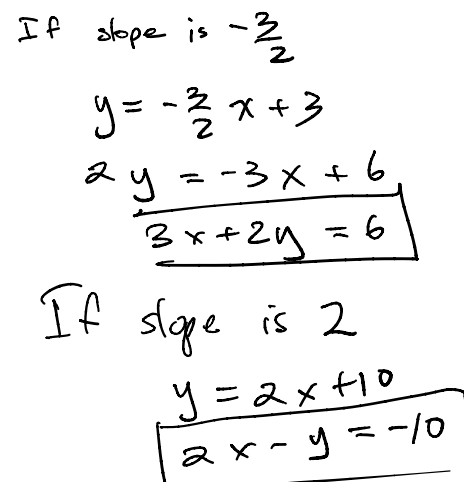 If slope is -3/2
y = -3/2 x + 3
2y = -3x + 6
3x + 2y = 6
If slope is 2
y = 2x + 10
2x - y = -10